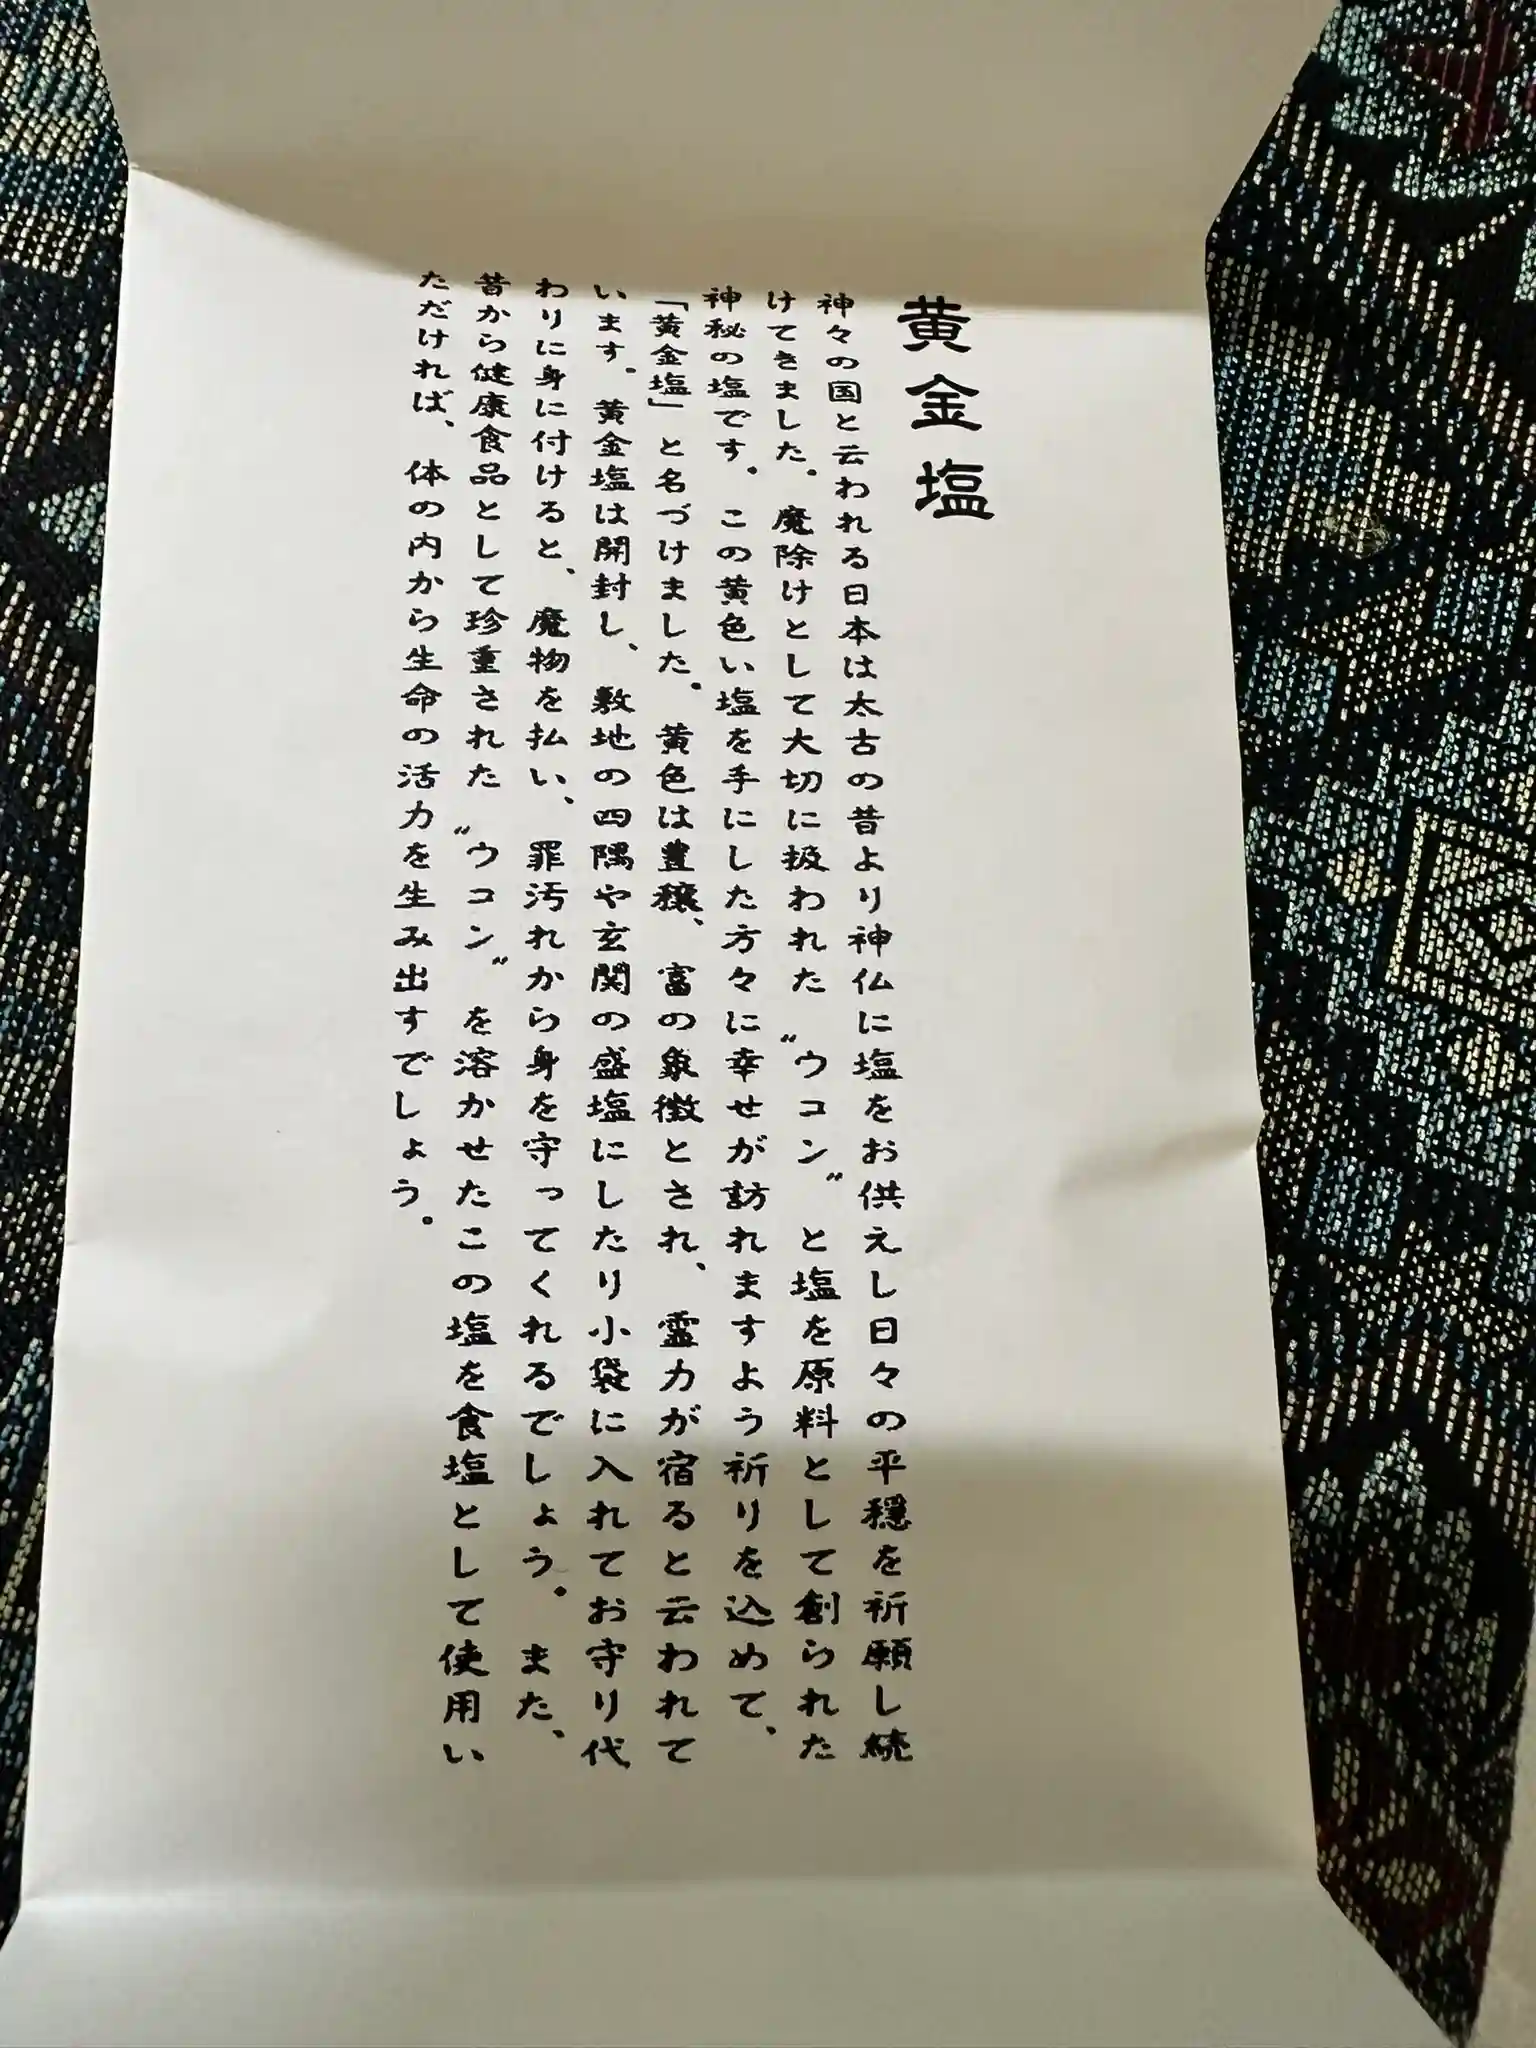 黄金塩
神々の国と云われる日本は太古の昔より神仏に塩をお供えし日々の平穏を祈願し続
けてきました。魔除けとして大切に扱われた〝ウコン〟と塩を原料として創られた
神秘の塩です。この黄色い塩を手にした方々に幸せが訪れますよう祈りを込めて、
「黄金塩」と名づけました。黄色は豊穣、富の象徴とされ、霊力が宿ると云われて
います。黄金塩は開封し、敷地の四隅や玄関の盛塩にしたり小袋に入れてお守り代
わりに身に付けると、魔物を払い、罪汚れから身を守ってくれるでしょう。また、
昔から健康食品として珍重された〝ウコン〟を溶かせたこの塩を食塩として使用い
ただければ、体の内から生命の活力を生み出すでしょう。